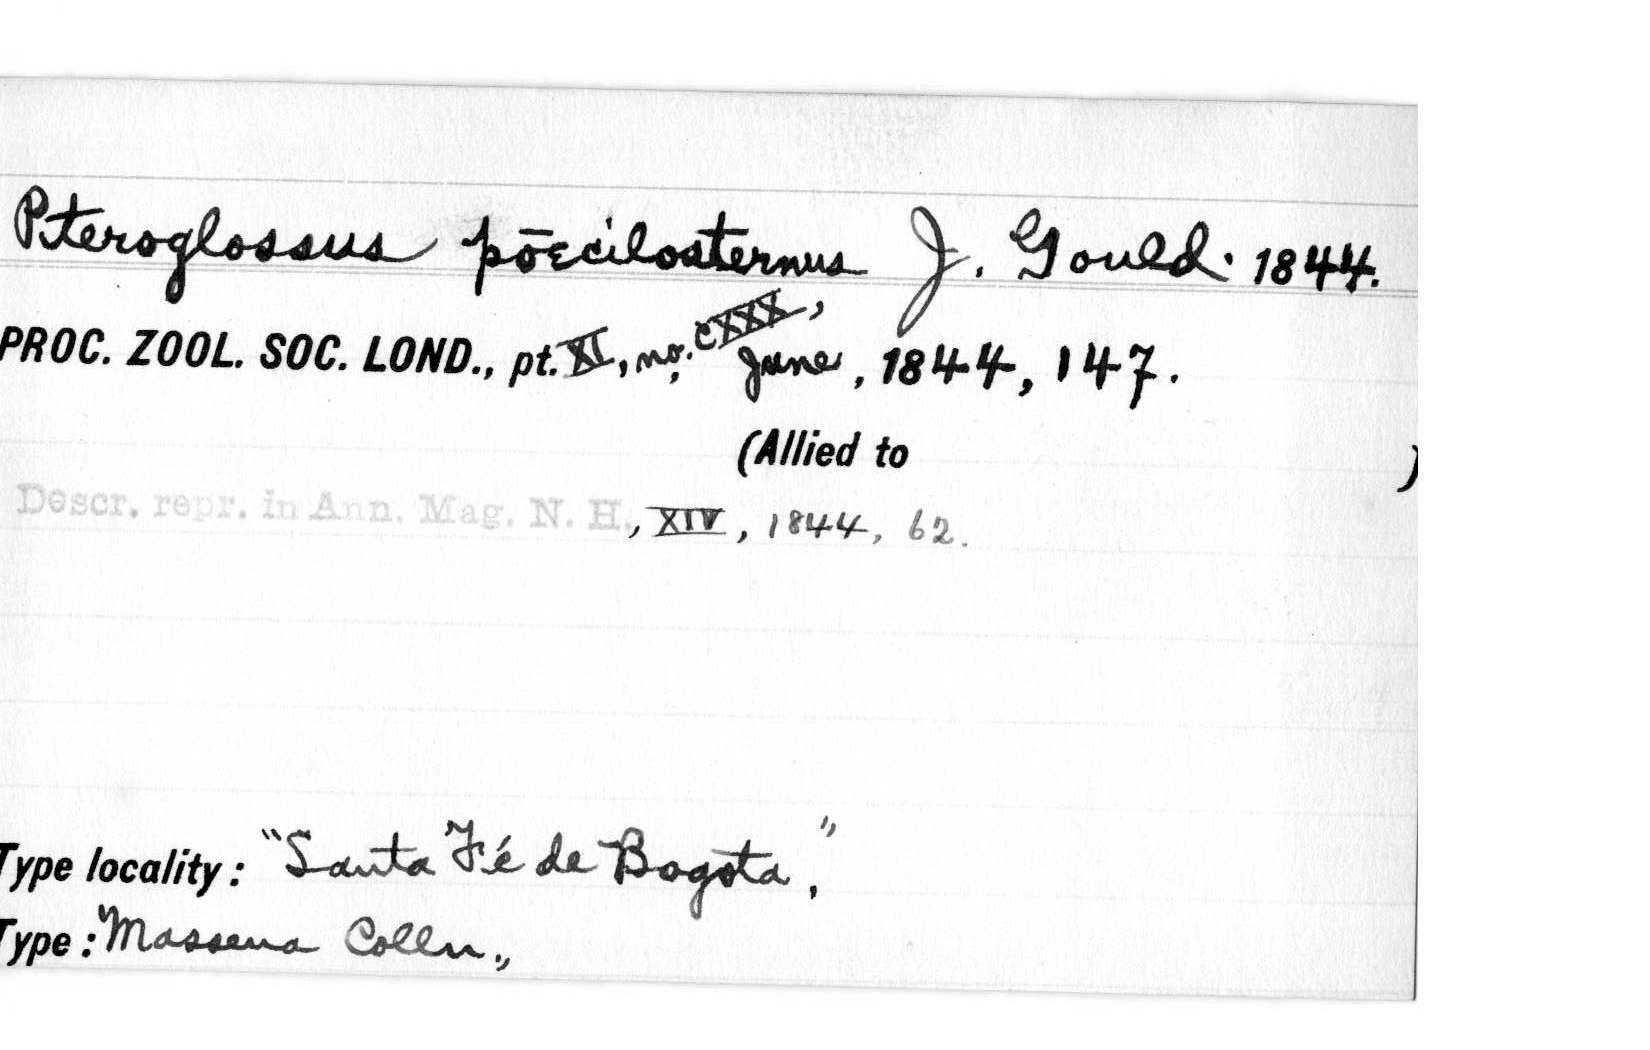 Pteroglossus pōecilosternus J. Gould. 1844.
PROC. ZOOL. SOC. LOND., pt. XI, no. CXXX, June, 1844, 147.
(Allied to )
Descr. repr. in Ann. Mag. N. H., XIV, 1844, 62.
Type locality: "Santa Fé de Bogota,"
Type: "Massena Colln.,,